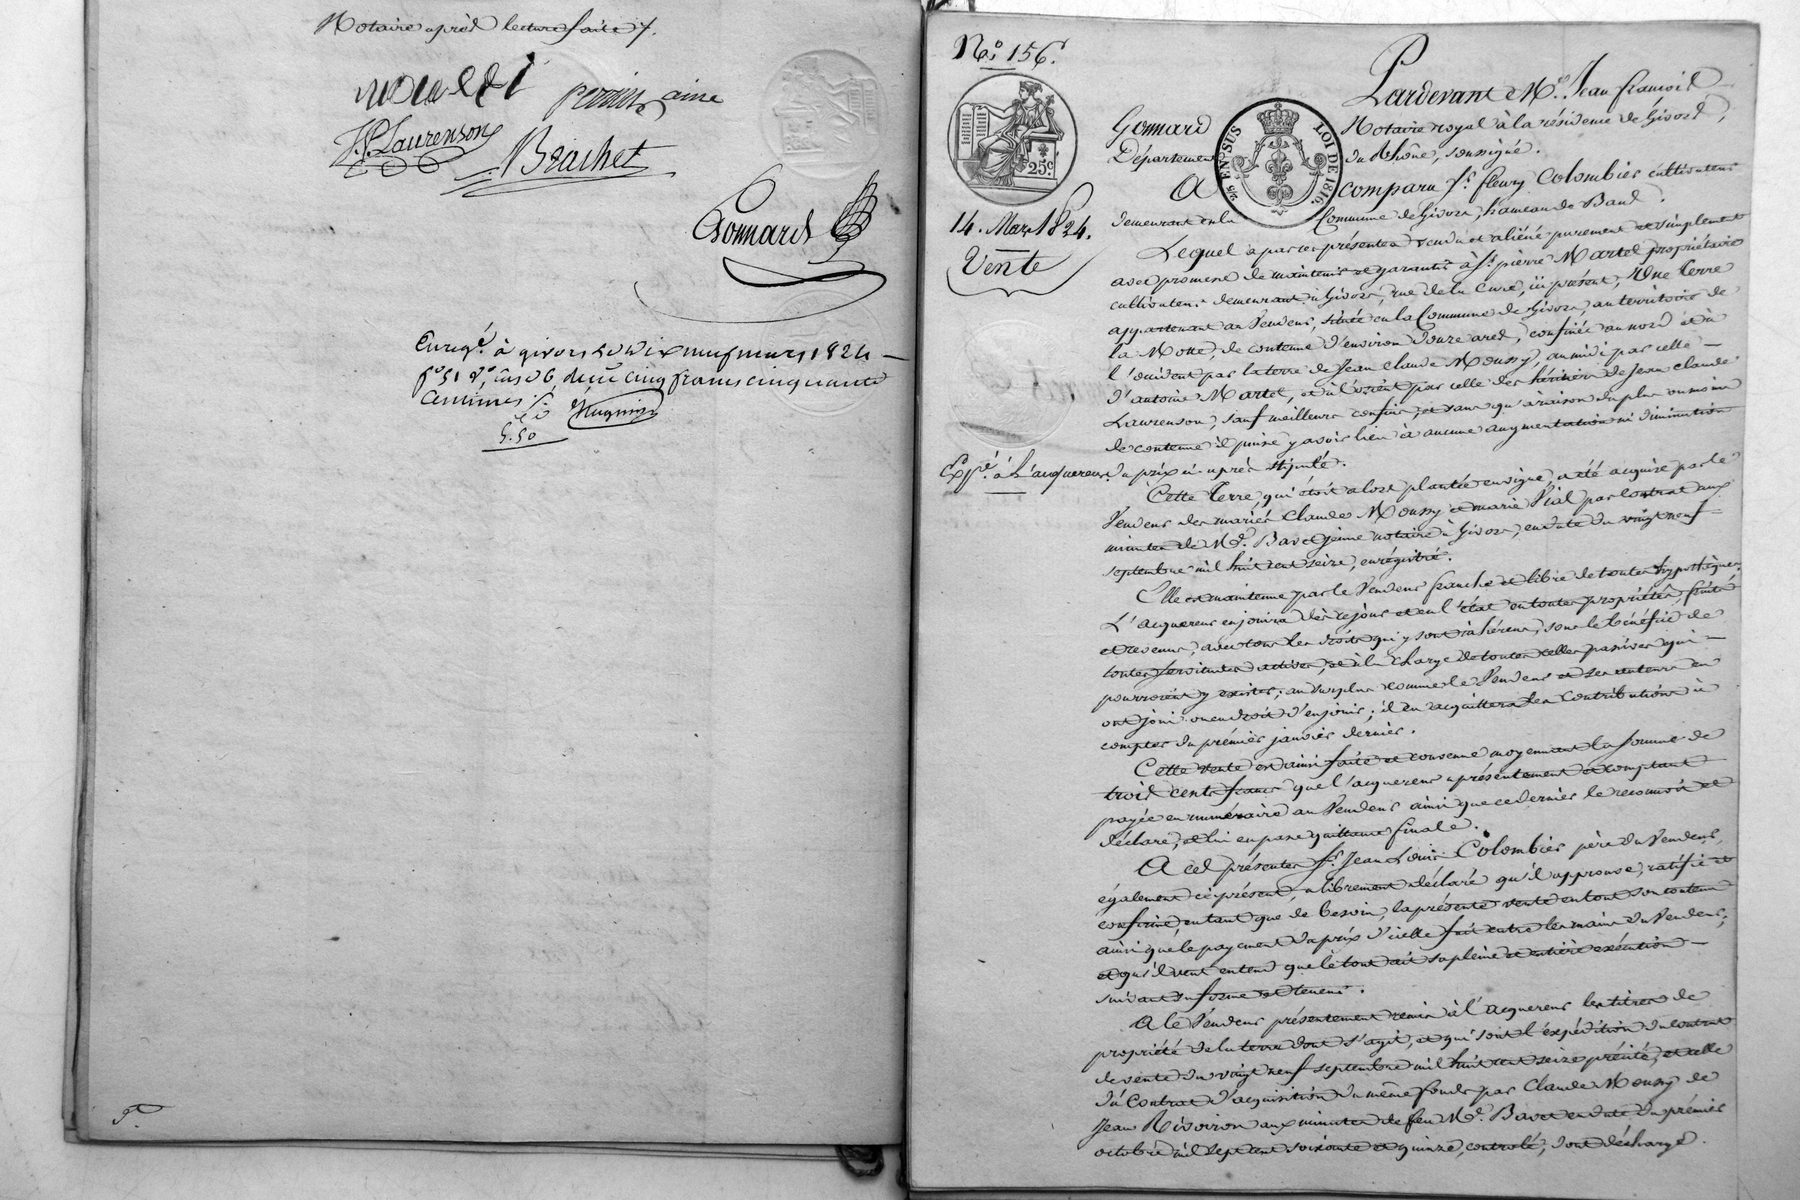 Notaire après lecture faite /.
perrin aine
J. P. Laurenson
Brachet
Gonnard
Enreg.é à givors le dix neuf mars 1824 —
f.o 51 v.o, cas 6, deux cinq francs cinquante
Centimes
5.50 Hugnin
N.o 156.
25c
14. Mars 1824.
Vente
Exp.é à L'acquereur.
2/5 EN SUS
LOI DE 1816.
Pardevant M.e Jean françois
Gonnard Notaire royal à la résidence de Givors,
Département du Rhône, soussigné.
A comparu S.r fleury Colombier cultivateur
demeurant en la Commune de Givors, hameau de Band.
Lequel a par ces présentes vendu et aliéné purement et simplement
avec promesse de maintenir et garantir à S.r pierre Martel propriétaire
cultivateur demeurant à Givors, rue de la Cure, ici présent, Une terre
appartenant au Vendeur, située en la Commune de Givors, au territoire de
la Motte, de contenue d'environ douze ares, confinée au nord et à
l'occident par la terre de Jean Claude Moussy, au midi par celle —
d'antoine Martel, et à l'orient par celle des héritiers de Jean claude
Laurenson, sauf meilleurs confins, et sans qu'à raison du plus ou moins
de contenue il puisse y avoir lieu à aucune augmentation ni diminution
du prix ci-après stipulé.
Cette terre, qui étoit alors plantée en vigne, a été acquise par le
Vendeur des mariés Claude Moussy et marie Vial par contrat aux
minutes de M.e Bavet jeune notaire à Givors, en date du vingt neuf
septembre mil huit cent seize, enrégistré.
Elle est maintenue par le Vendeur franche et libre de toutes hypothèques.
L'acquereur en jouira dès ce jour et en l'état en toutes propriétés, fruits
et revenus, avec tous les droits qui y sont inhérens, sous le bénéfice de
toutes servitudes actives, et à la charge de toutes celles passives qui —
pourroient y exister; au surplus comme le Vendeur et ses auteurs en
ont joui ou eu droit d'en jouir; il en acquittera les contributions à
compter du prémier janvier dernier.
Cette vente est ainsi faite et consenue moyennant la somme de
trois cents francs que l'acquereur a présentement et comptant
payée en numéraire au Vendeur ainsi que ce dernier le reconnoit et
déclare, et lui en passe quittance finale.
A ces présentes S.r Jean Louis Colombier père du Vendeur,
également ici présent, a librement déclaré qu'il approuve, ratifie et
confirme, en tant que de besoin, la présente vente en tout son contenu
ainsi que le payement du prix d'icelle fait entre les mains du Vendeur,
et qu'il veut entend que le tout ait sa pleine et entière exécution —
suivant sa forme et teneur.
A le Vendeur présentement remis à l'acquereur les titres de
propriété de la terre dont s'agit, et qui sont l'expédition du contrat
de vente du vingt neuf septembre mil huit cent seize précité, et celle
du Contrat d'acquisition du même fonds par Claude Moussy de
Jean Rivoiron aux minutes de feu M.e Bavet en date du prémier
octobre mil sept cent soixante et quinze, controlé, dont décharge.